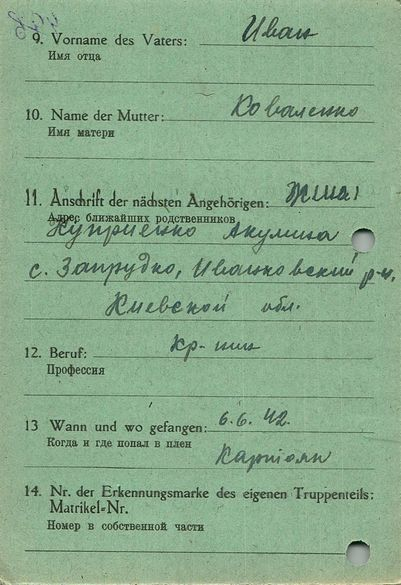 9. Vorname des Vaters: Иван
Имя отца
10. Name der Mutter: Коваленко
Имя матери
11. Anschrift der nächsten Angehörigen: Жена
Адрес ближайших родственников
Куприенко Акулина
с. Запрудко, Иванковский р-н,
Киевской обл.
12. Beruf: кр-нин
Профессия
13 Wann und wo gefangen: 6.6.42.
Когда и где попал в плен
14. Nr. der Erkennungsmarke des eigenen Truppenteils:
Matrikel-Nr.
Номер в собственной части